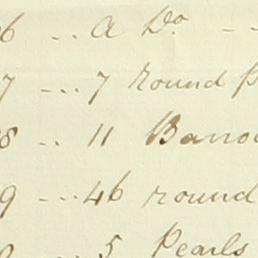 6 ... A Do - -
7 ... 7 round
8 .. 11
9 ... 46 round
5 Pearls